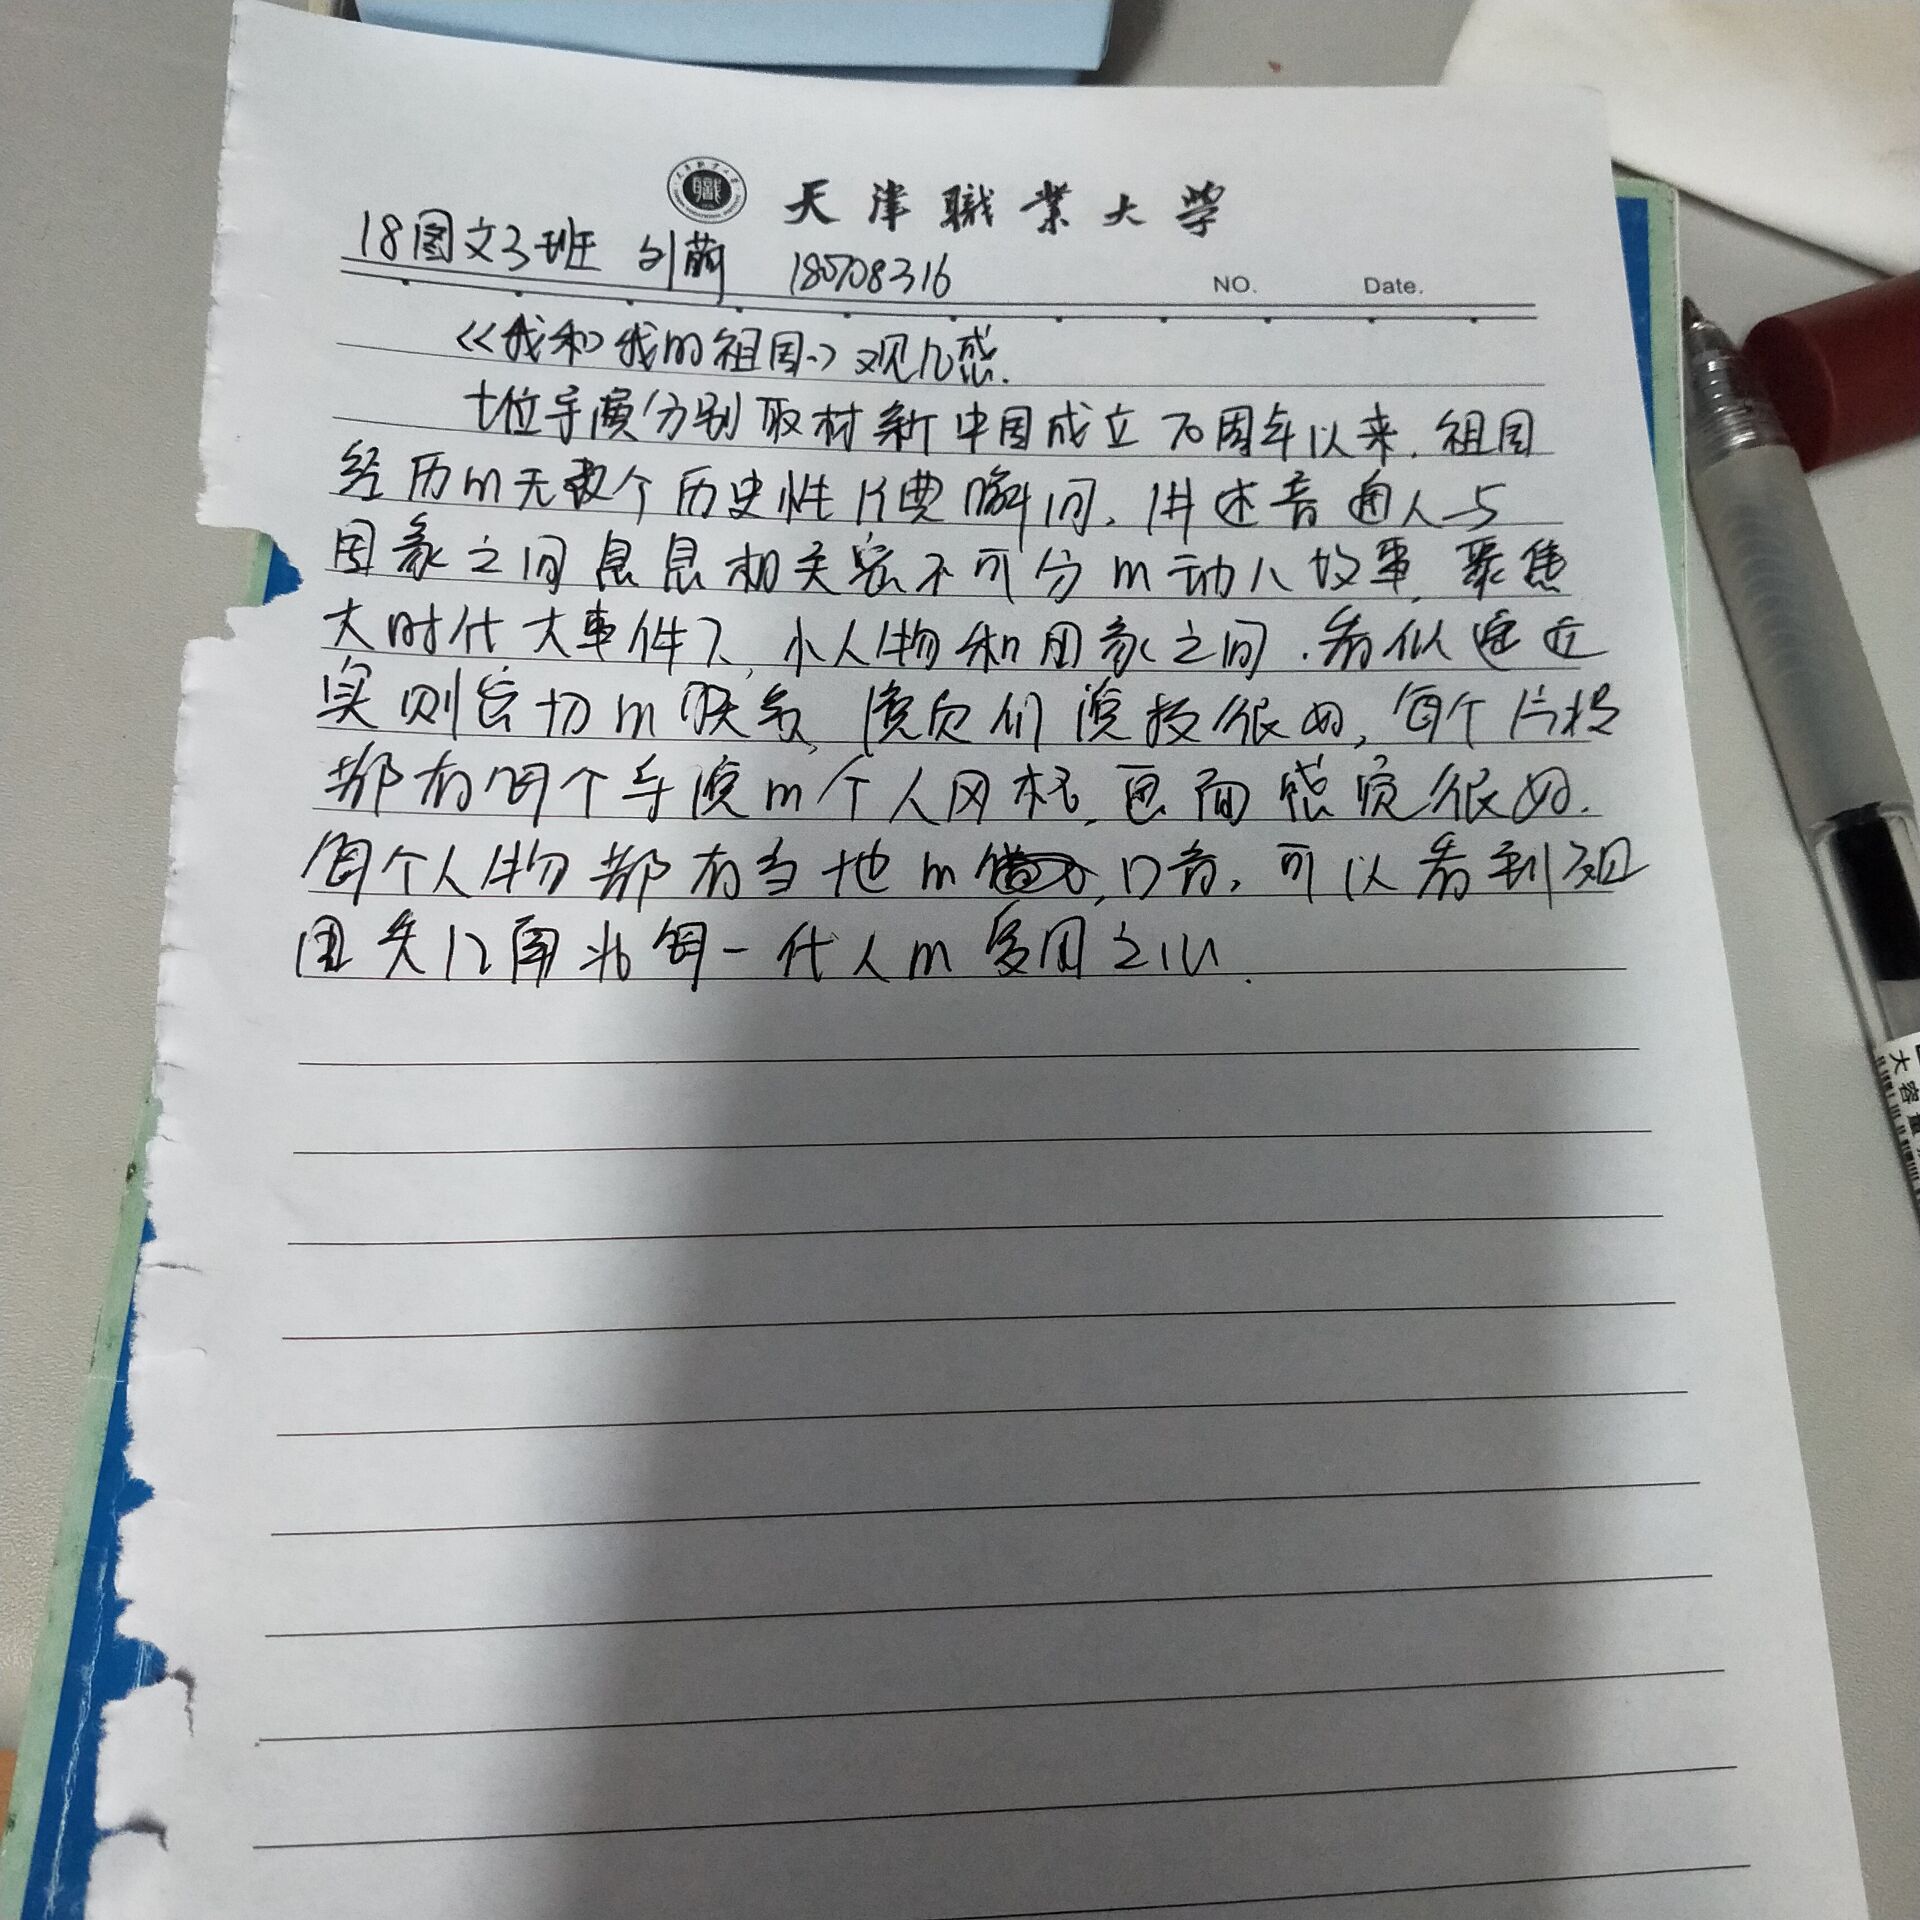 天津職業大學
18图文3班 刘萌 18708316
NO. Date.
《我和我的祖国》观后感.
七位导演分别取材新中国成立70周年以来，祖国
经历的无数个历史性经典瞬间，讲述普通人与
国家之间息息相关密不可分的动人故事，聚焦
大时代大事件下，小人物和国家之间，看似遥远
实则密切的联系，演员们演技很好，每个片段
都有每个导演的个人风格，画面感觉很好.
每个人物都有当地的口音，可以看到祖
国大江南北每一代人的爱国之心.
大容量